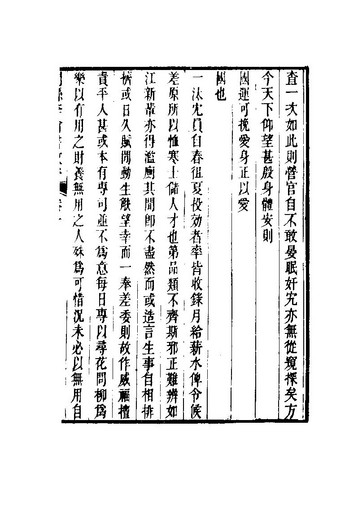 查一次如此則營官自不敢晏眠奸宄亦無從窺探矣方
今天下仰望甚殷身體安則
國運可挽愛身正以愛
國也
一汰宂員自春徂夏投効者率皆收錄月給薪水俾令候
差原所以惟寒士儲人才也第品類不齊斯邪正難辨如
江新常亦得濫廁其間即不盡然而或造言生事自相排
擠或日久賦閒動生觖望幸而一奉差委則故作威福擅
責平人甚或本有專司並不爲意每日專以尋花問柳爲
樂以有用之財養無用之人殊爲可惜況未必以無用自